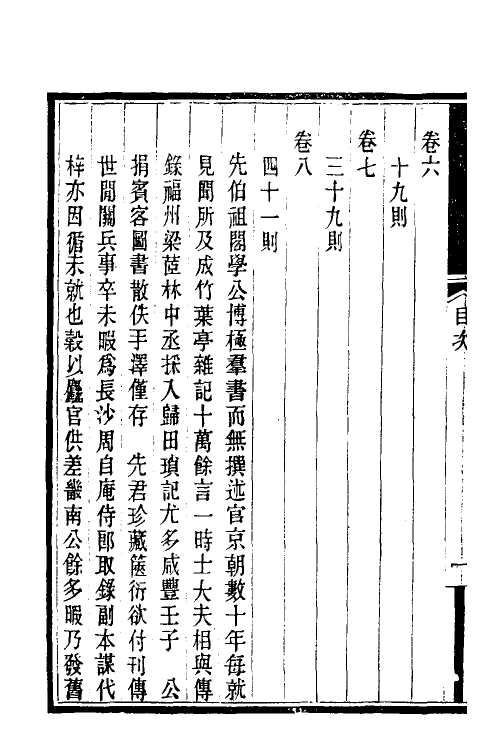 卷六
十九則
卷七
三十九則
卷八
四十一則
先伯祖閣學公博極羣書而無撰述官京朝數十年每就
見聞所及成竹葉亭雜記十萬餘言一時士大夫相與傳
錄福州梁茝林中丞採入歸田瑣記尤多咸豐壬子　公
捐賓客圖書散佚手澤僅存　先君珍藏篋衍欲付刊傳
世閒關兵事卒未暇爲長沙周自庵侍郎取錄副本謀代
梓亦因循未就也穀以麤官供差畿南公餘多暇乃發舊
目次